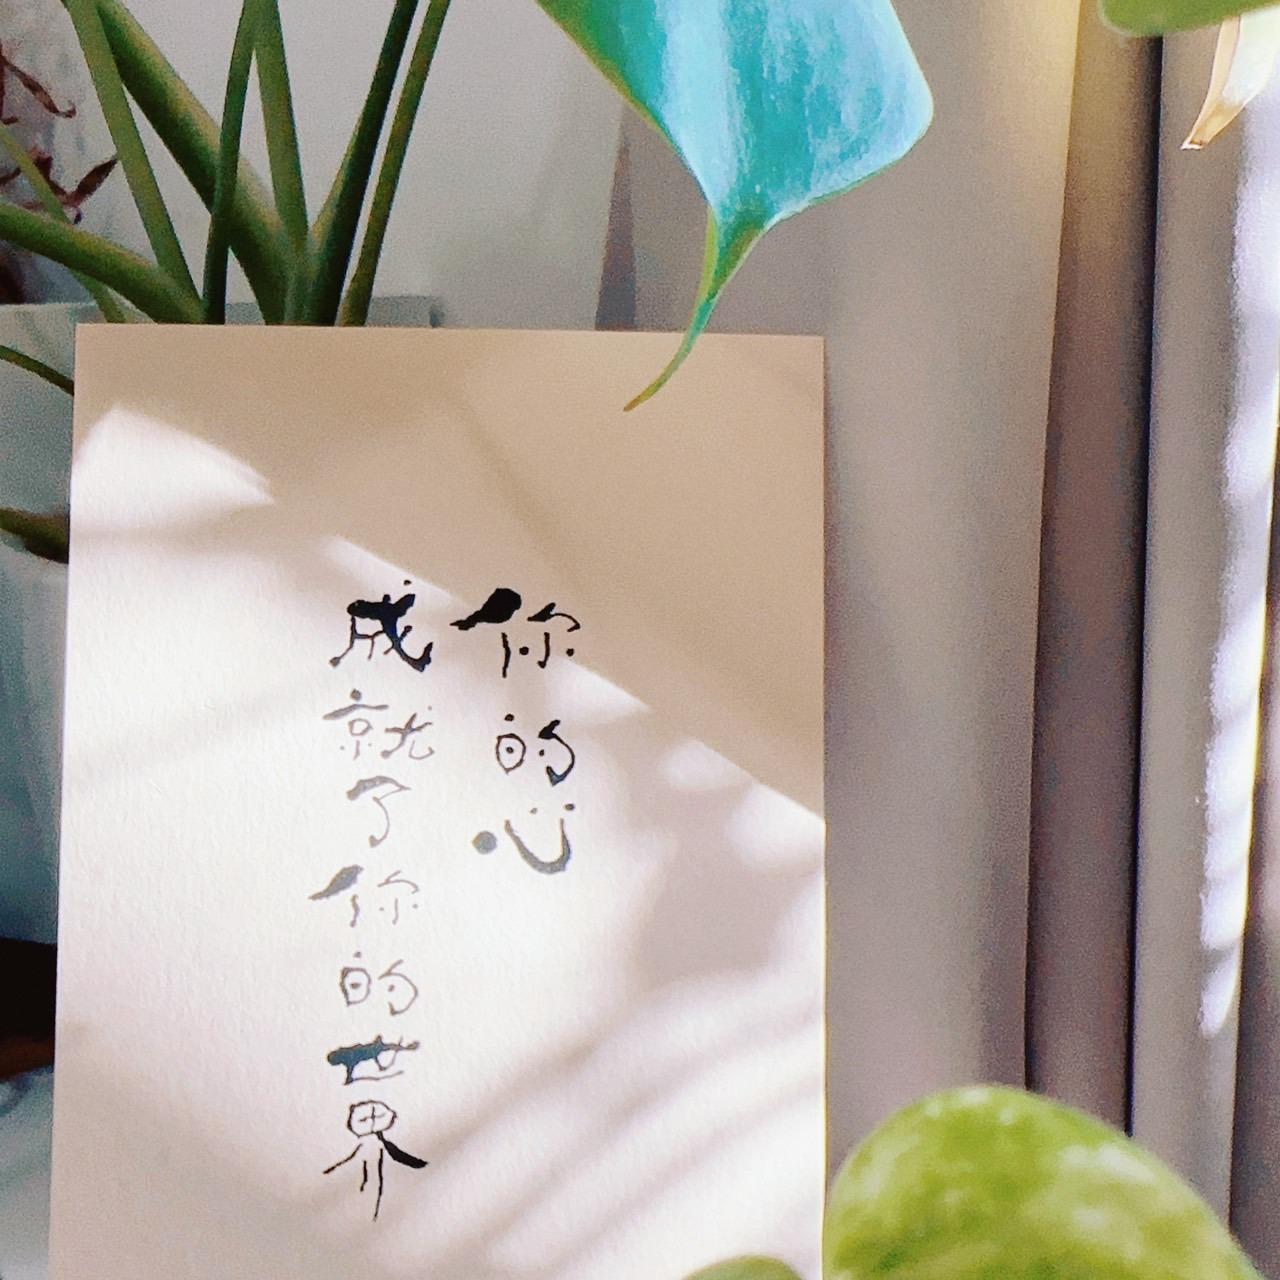 你的心
成就了你的世界